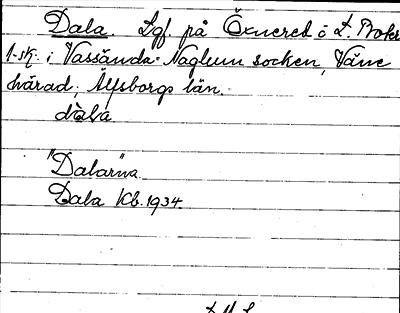 Dala. Lgf. på Öxneret ö L. Boks
1-sk. i Vassända-Naglum socken, Väne
härad, Älfsborgs län.
dàla
"Dalarna"
Dala Kb. 1934